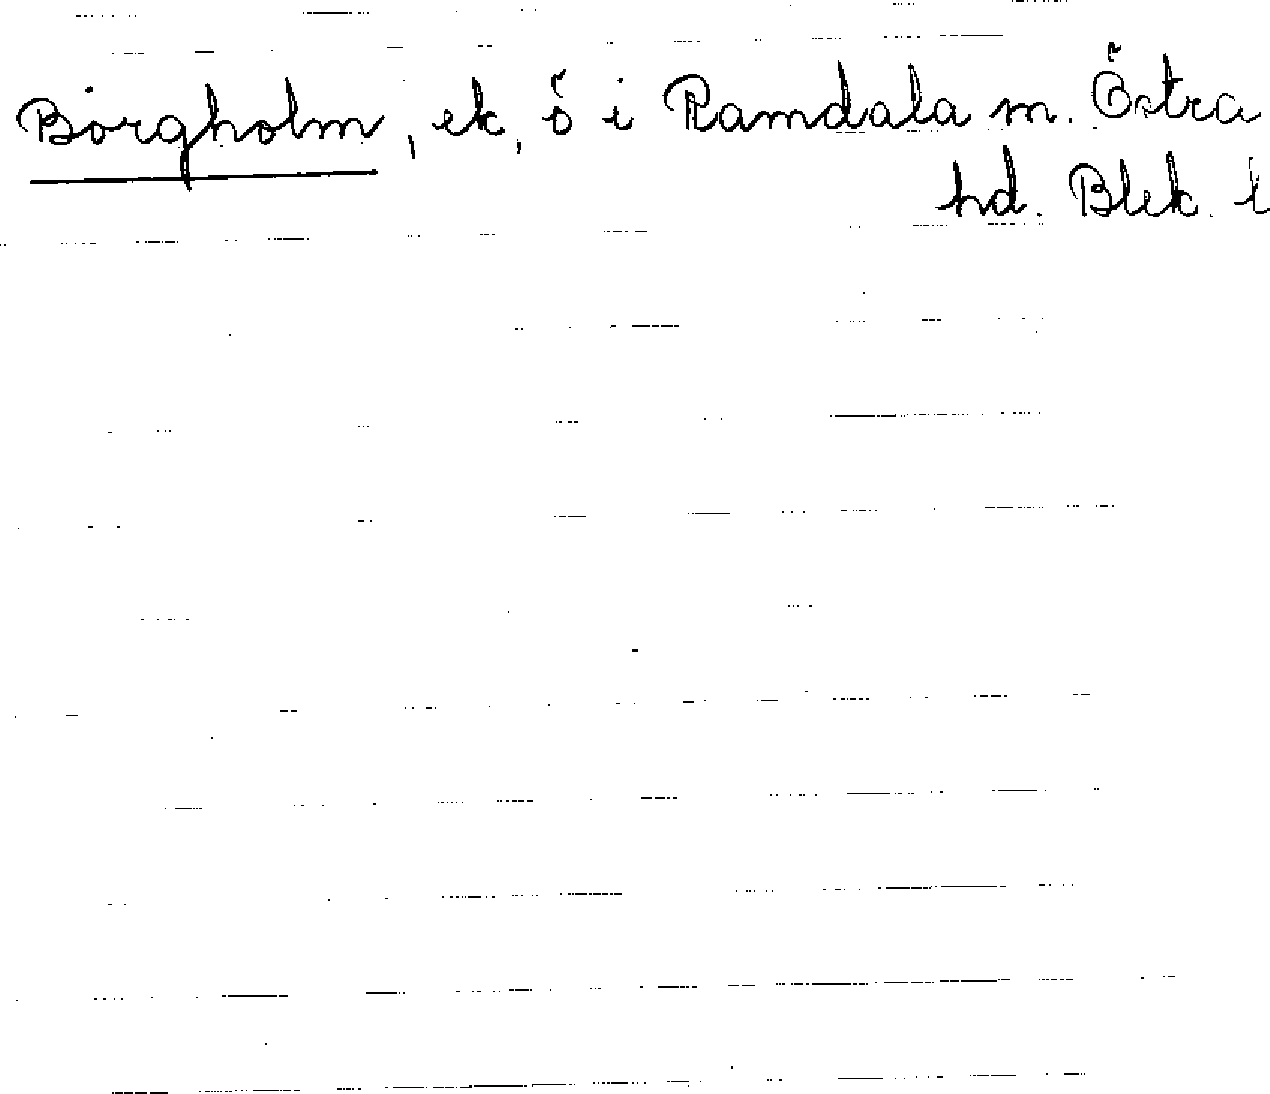 Borgholm, ek, ö i Ramdala m. Östra
hd. Blek. l